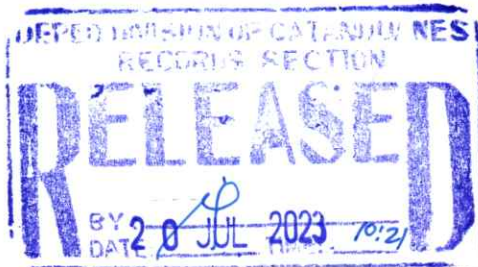 DEPED DIVISION OF CATANDUANES
RECORDS SECTION
RELEASED
BY
DATE 20 JUL 2023 10:21